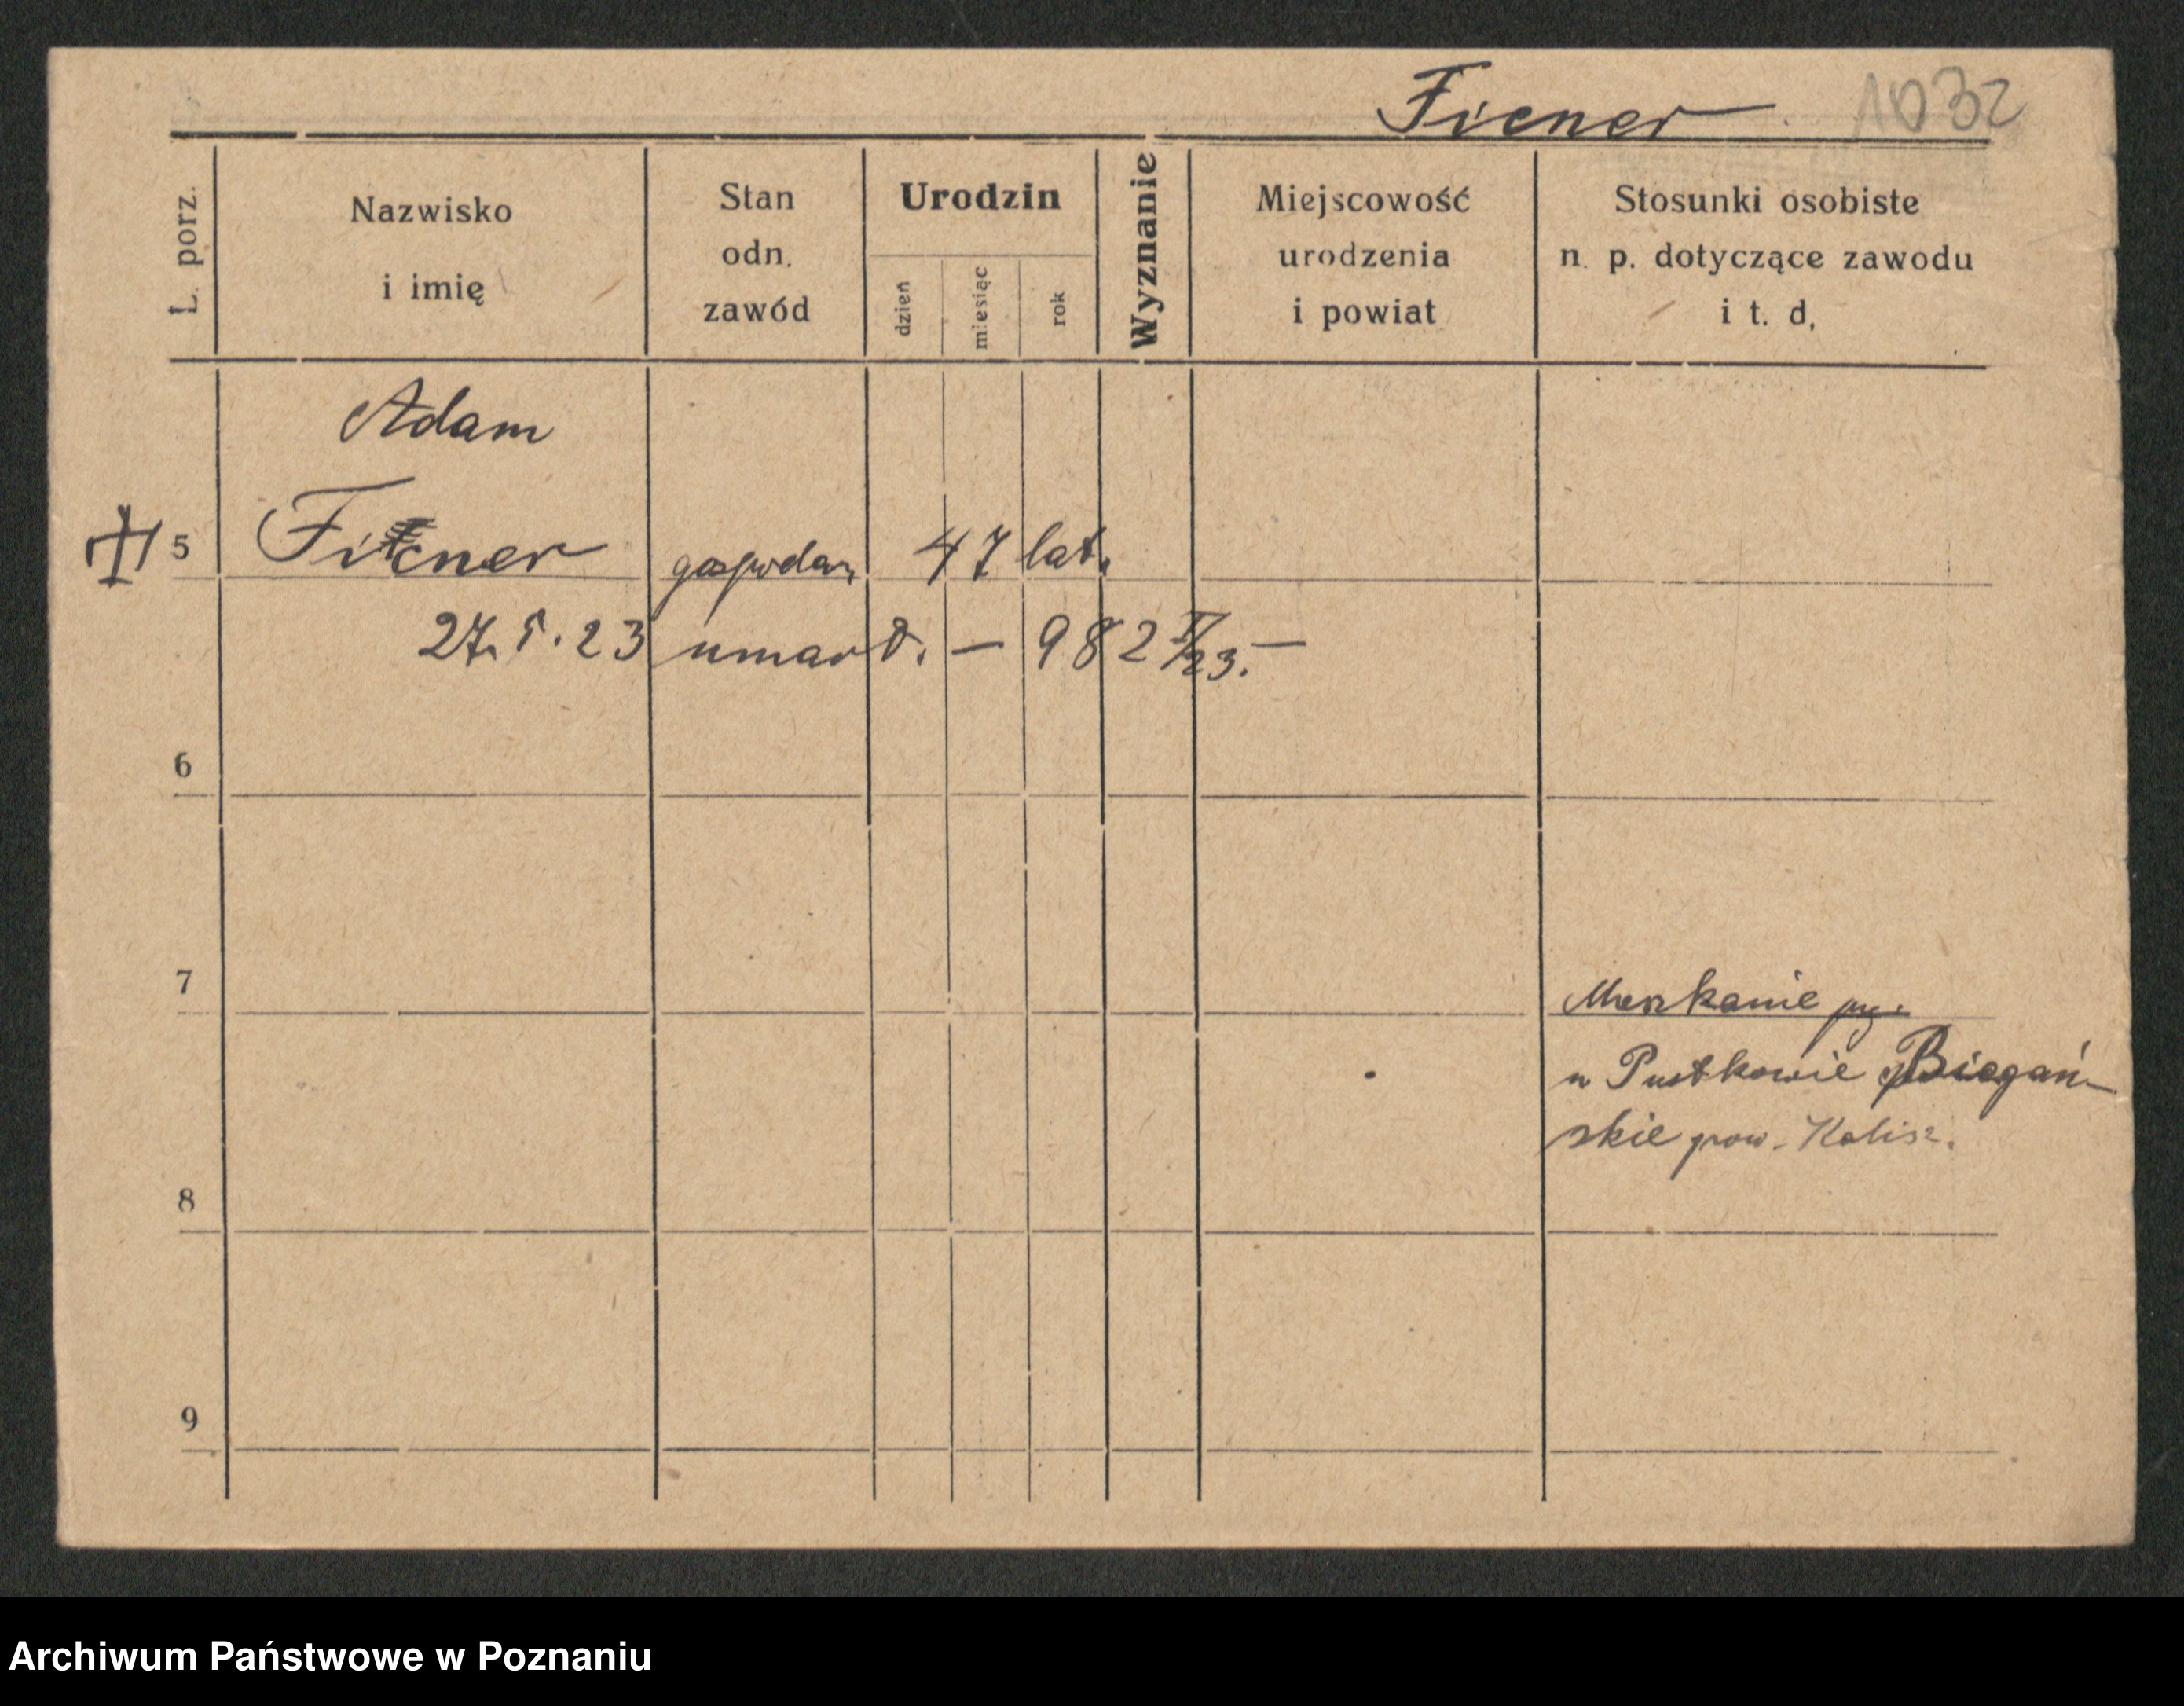 Ficner 1032
L. porz.
Nazwisko
i imię
Stan
odn.
zawód
Urodzin
dzień
miesiąc
rok
Wyznanie
Miejscowość
urodzenia
i powiat
Stosunki osobiste
n. p. dotyczące zawodu
i t. d,
Adam
5 Ficner gospodarz 47 lat.
27.5.23 umarł. — 982 /23. —
6
7
Mieszkanie
w Pustkowie Biegań-
skie pow. Kalisz.
8
9
Archiwum Państwowe w Poznaniu